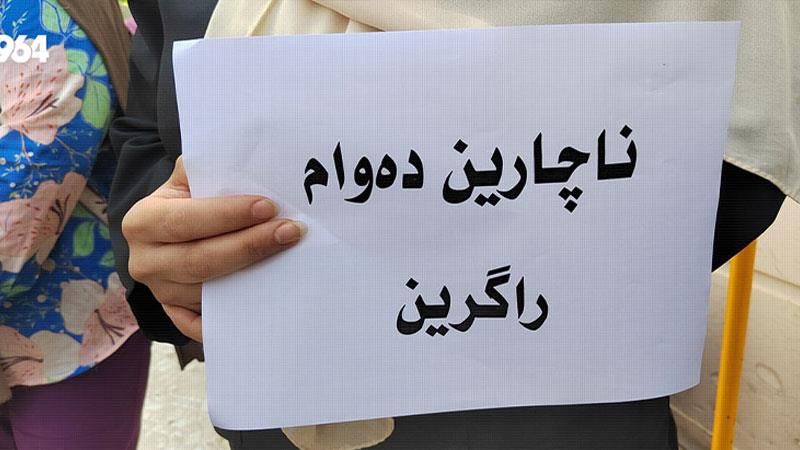 964
ناچارین دەوام
راگرین